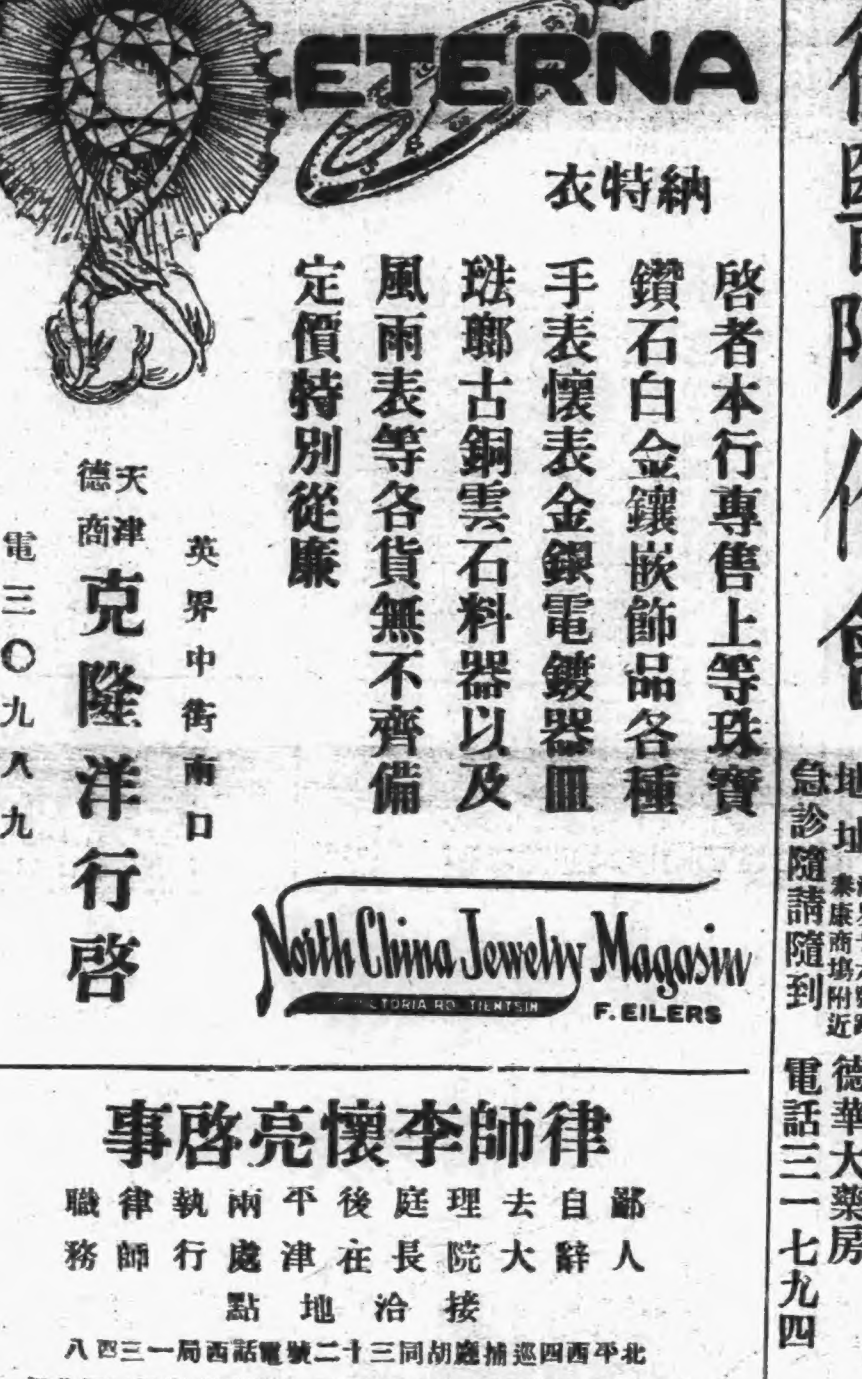 ETERNA
納特衣
啓者本行專售上等珠寶
鑽石白金鑲嵌飾品各種
手表懷表金銀電鍍器皿
琺瑯古銅雲石料器以及
風雨表等各貨無不齊備
定價特別從廉
英界中街南口
天津
德商
克隆洋行啓
電三〇九八九
North China Jewelry Magasin
VICTORIA RD. TIENTSIN
F. EILERS
律師李懷亮啓事
鄙人
自辭
去大
理院
庭長
後在
平津
兩處
執行
律師
職務
接洽地點
北平西四巡捕廳胡同三十二號電話西局一三四八
地址
泰康商場附近
急診隨請隨到
德華大藥房
電話三一七九四